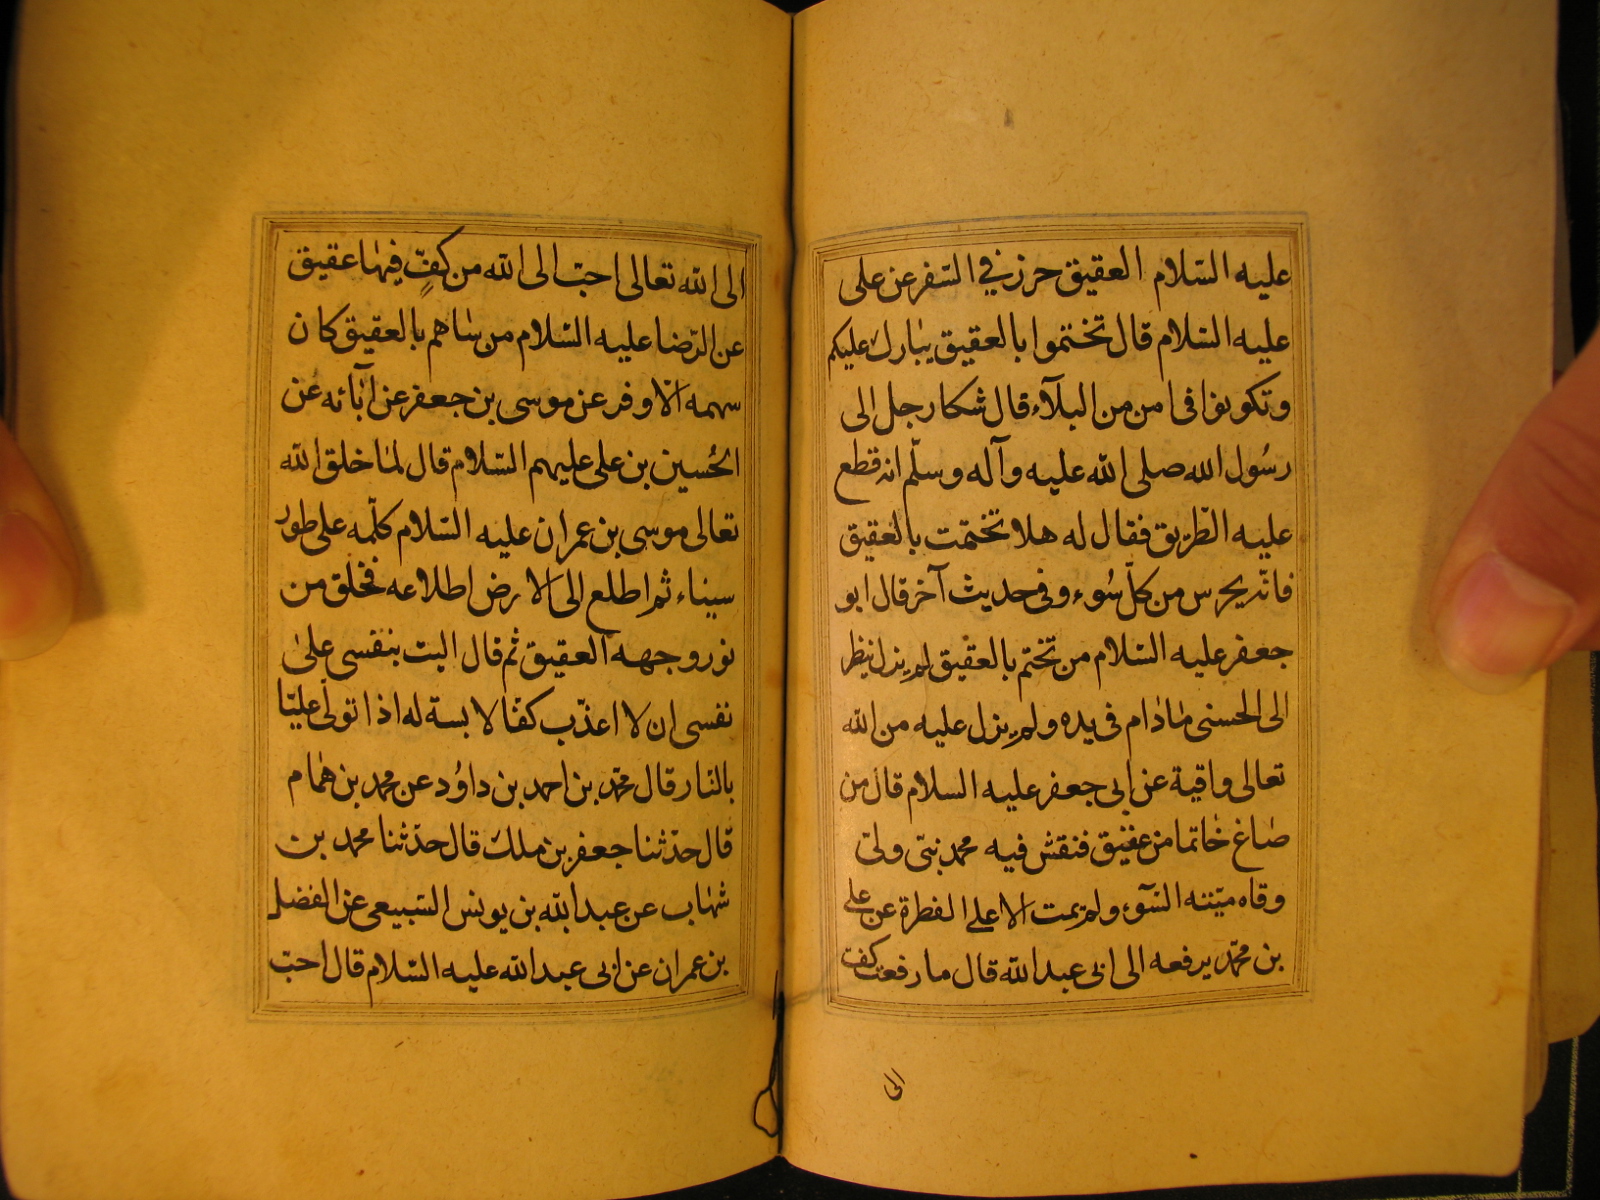 عليه السّلام العقيق حرز في السّفر عن على
عليه السّلام قال تختموا بالعقيق يبارك عليكم
وتكونوا فى امن من البلآء قال شكا رجل الى
رسُول الله صلى الله عليه وآله وسلّم انه قطع
عليه الطّريق فقال له هلا تختمت بالعقيق
فانّه يحرس من كلّ سُوء وفى حديث آخر قال ابو
جعفر عليه السّلام من تختم بالعقيق لم يزل ينظر
الى الحسنى مادام فى يده ولم يزل عليه من الله
تعالى واقية عن ابى جعفر عليه السلام قال من
صاغ خاتما من عقيق فنقش فيه محمد نبّى ولىّ
وقاه ميتته السّوء ولم يمت الا على الفطرة عن على
بن محمّد يرفعه الى ابى عبد الله قال ما رفعت كفّ
الى
الى الله تعالى احبّ الى الله من كفٍّ فيها عقيق
عن الرّضا عليه السّلام من ساهم بالعقيق كان
سهمه الاوفر عن موسى بن جعفر عن آبائه عن
الحُسين بن على عليهم السّلام قال لما خلق الله
تعالى موسى بن عمران عليه السّلام كلّمه على طور
سيناء ثم اطلع الى الارض اطلاعه فخلق من
نور وجهه العقيق ثم قال اليت بنفسى على
نفسى ان لا اعذّب كفّا لابسة له اذا تولّى عليّا
بالنّار قال محمّد بن احمد بن داوُد عن محمد بن همام
قال حدّثنا جعفر بن ملك قال حدّثنا محمد بن
شهاب عن عبد الله بن يونس السّبيعى عن الفضل
بن عمران عن ابى عبد الله عليه السّلام قال احبّ